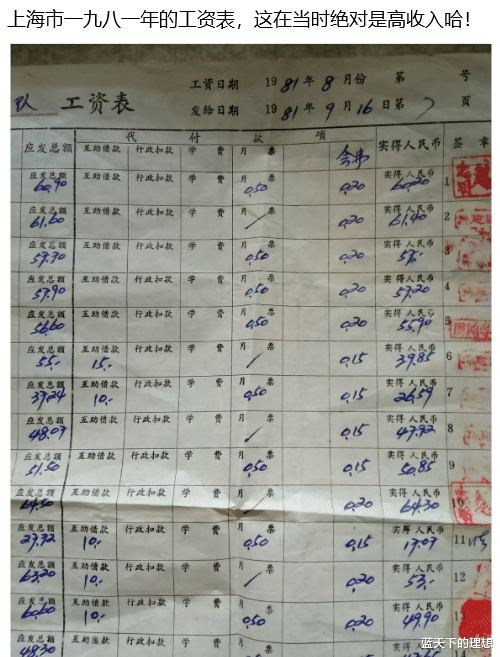 上海市一九八一年的工资表，这在当时绝对是高收入哈！
工资日期 1981年8月份 第 号
队 工资表 发给日期 1981年9月16日第 7 页
代 付 款 项
应发总额 互助借款 行政扣款 学费 月票 会费 实得人民币 签章
应发总额 互助借款 行政扣款 学费 月票 实得人民币 1
60.90 0.50 0.20 60.20
应发总额 互助借款 行政扣款 学费 月票 实得人民币 2
61.60 / 0.20 61.40
应发总额 互助借款 行政扣款 学费 月票 实得人民币 3
57.70 0.50 0.20 57.-
应发总额 互助借款 行政扣款 学费 月票 实得人民币 4
57.90 0.50 0.20 57.20
应发总额 互助借款 行政扣款 学费 月票 实得人民币 5
56.60 0.50 0.20 55.90
应发总额 互助借款 行政扣款 学费 月票 实得人民币 6
55.- 15.- / 0.15 39.85
应发总额 互助借款 行政扣款 学费 月票 实得人民币 7
37.24 10.- 0.50 0.15 26.59
应发总额 互助借款 行政扣款 学费 月票 实得人民币 8
48.07 / 0.15 47.92
应发总额 互助借款 行政扣款 学费 月票 实得人民币 9
51.50 0.50 0.15 50.85
应发总额 互助借款 行政扣款 学费 月票 实得人民币 10
64.50 / 0.20 64.30
应发总额 互助借款 行政扣款 学费 月票 实得人民币 11
27.72 10.- 0.50 0.15 17.07
应发总额 互助借款 行政扣款 学费 月票 实得人民币 12
63.20 10.- / 0.20 53.-
应发总额 互助借款 行政扣款 学费 月票 实得人民币 13
60.60 10.- 0.50 0.20 49.90
应发总额 互助借款 行政扣款 学费 月票 实得人民币
48.30
蓝天下的理想